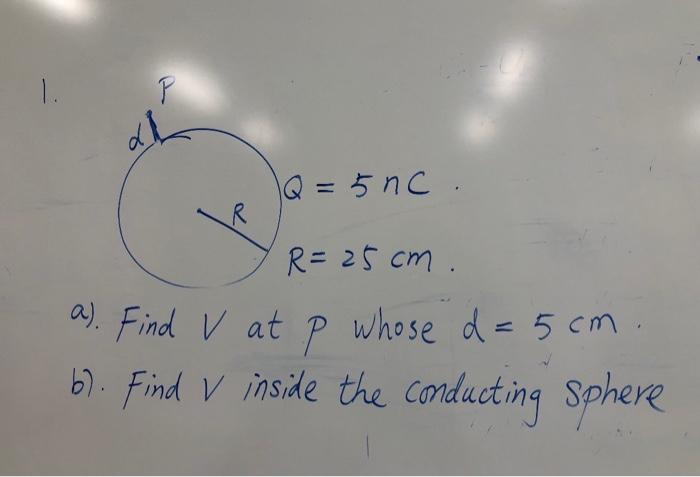 1.
P
d
Q = 5 nC.
R
R = 25 cm.
a). Find V at P whose d = 5 cm.
b). Find V inside the conducting sphere